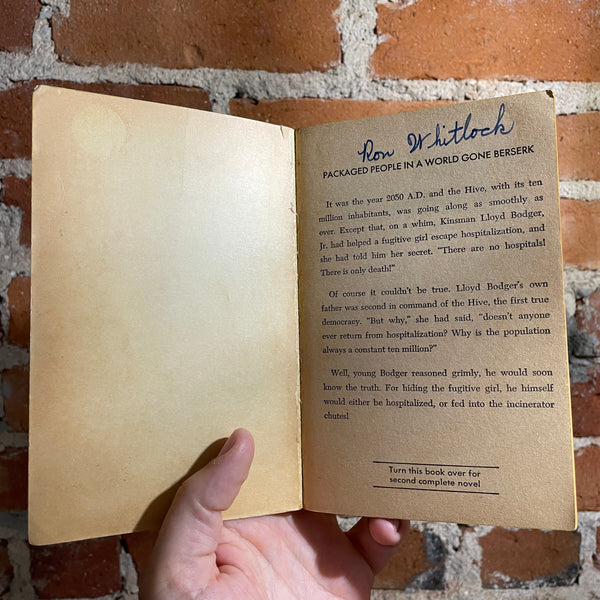 Ron Whitlock
PACKAGED PEOPLE IN A WORLD GONE BERSERK
It was the year 2030 A.D. and the Hive, with its ten
million inhabitants, was going along as smoothly as
ever. Except that, on a whim, Kinsman Lloyd Bodger,
Jr. had helped a fugitive girl escape hospitalization, and
she had told him her secret. "There are no hospitals!
There is only death!"
Of course it couldn't be true. Lloyd Bodger's own
father was second in command of the Hive, the first true
democracy. "But why," she had said, "doesn't anyone
ever return from hospitalization? Why is the population
always a constant ten million?"
Well, young Bodger reasoned grimly, he would soon
know the truth. For hiding the fugitive girl, he himself
would either be hospitalized, or fed into the incinerator
chutes!
Turn this book over for
second complete novel